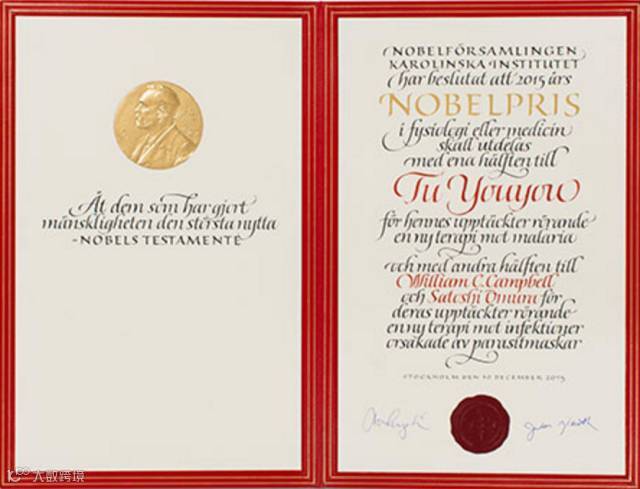 Åt dem som har gjort
mänskligheten den största nytta
-NOBELS TESTAMENTE
NOBELFÖRSAMLINGEN
KAROLINSKA INSTITUTET
har beslutat att 2015 års
NOBELPRIS
i fysiologi eller medicin
skall utdelas
med ena hälften till
Tu Youyou
för hennes upptäckter rörande
en ny terapi mot malaria
och med andra hälften till
William C. Campbell
och Satoshi Ōmura för
deras upptäckter rörande
en ny terapi mot infektioner
orsakade av parasitmaskar
STOCKHOLM DEN 10 DECEMBER 2015
大数跨境